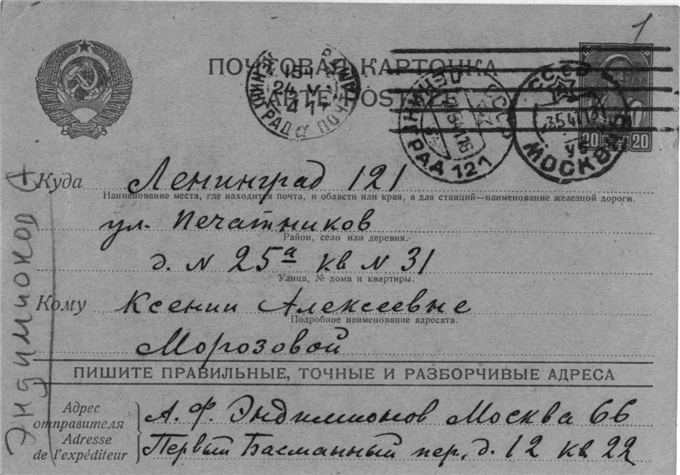 1
ПОЧТОВАЯ КАРТОЧКА
CARTE POSTALE
СССР
МОСКВА
20 20
ЛЕНИНГРАД 121
СССР
Куда Ленинград 121
Наименование места, где находится почта, и области или края, а для станций—наименование железной дороги.
ул. Печатников
Район, село или деревня.
д. N 25а кв N 31
Улица, № дома и квартиры.
Кому Ксении Алексеевне
Подробное наименование адресата.
Морозовой
ПИШИТЕ ПРАВИЛЬНЫЕ, ТОЧНЫЕ И РАЗБОРЧИВЫЕ АДРЕСА
Адрес отправителя
Adresse de l'expéditeur
А. Ф. Эндимионов Москва 66
Первый Басманный пер, д. 12 кв 22